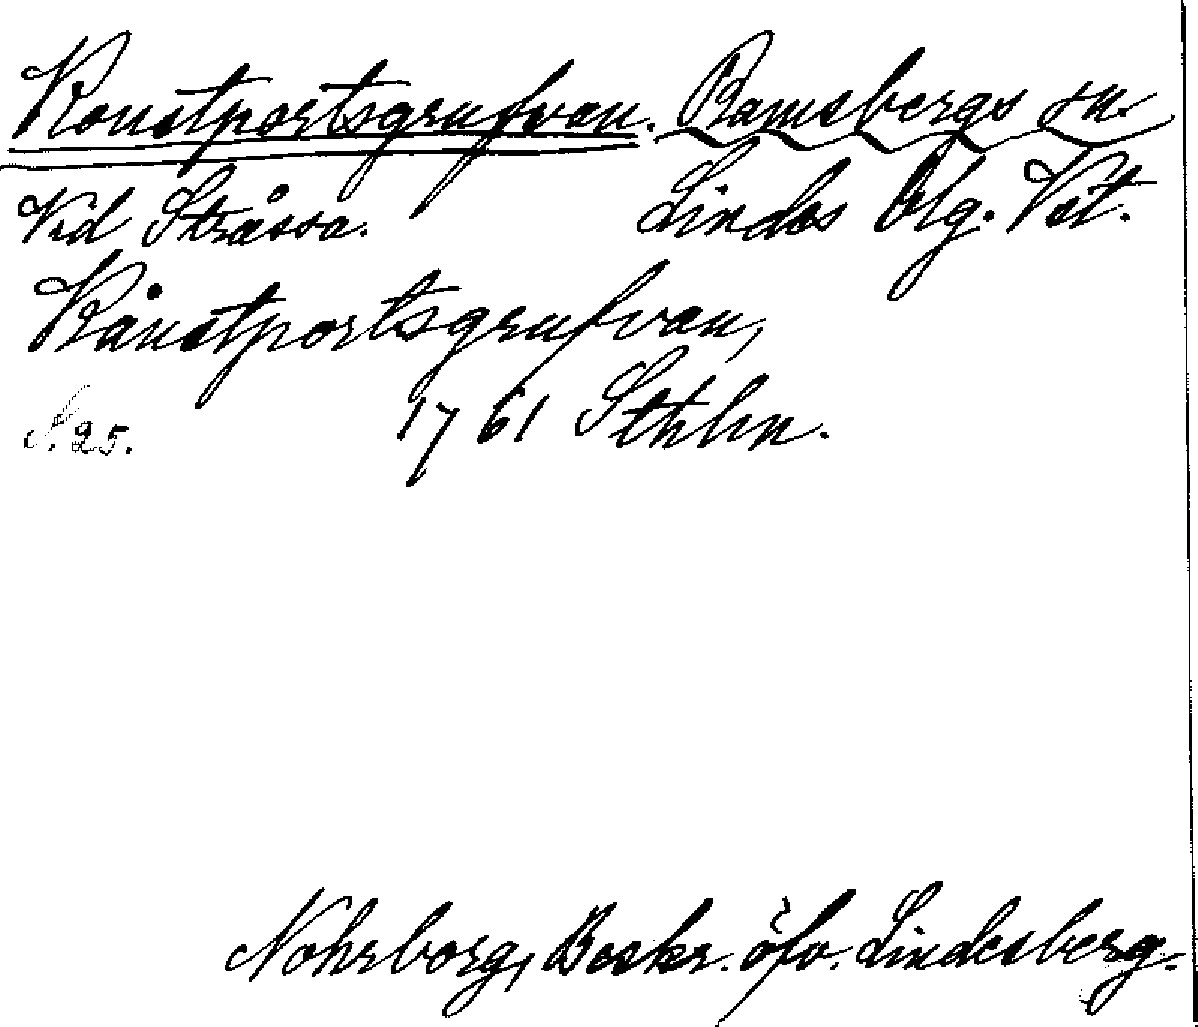 Konstportsgrufvan. Ramsbergs sn.
Vid Stråssa. Lindes Blg. Vst.
Kånstportsgrufvan,
S. 25. 1761 Sthlm.
Nohrborg, Beskr. öfv. Lindesberg.